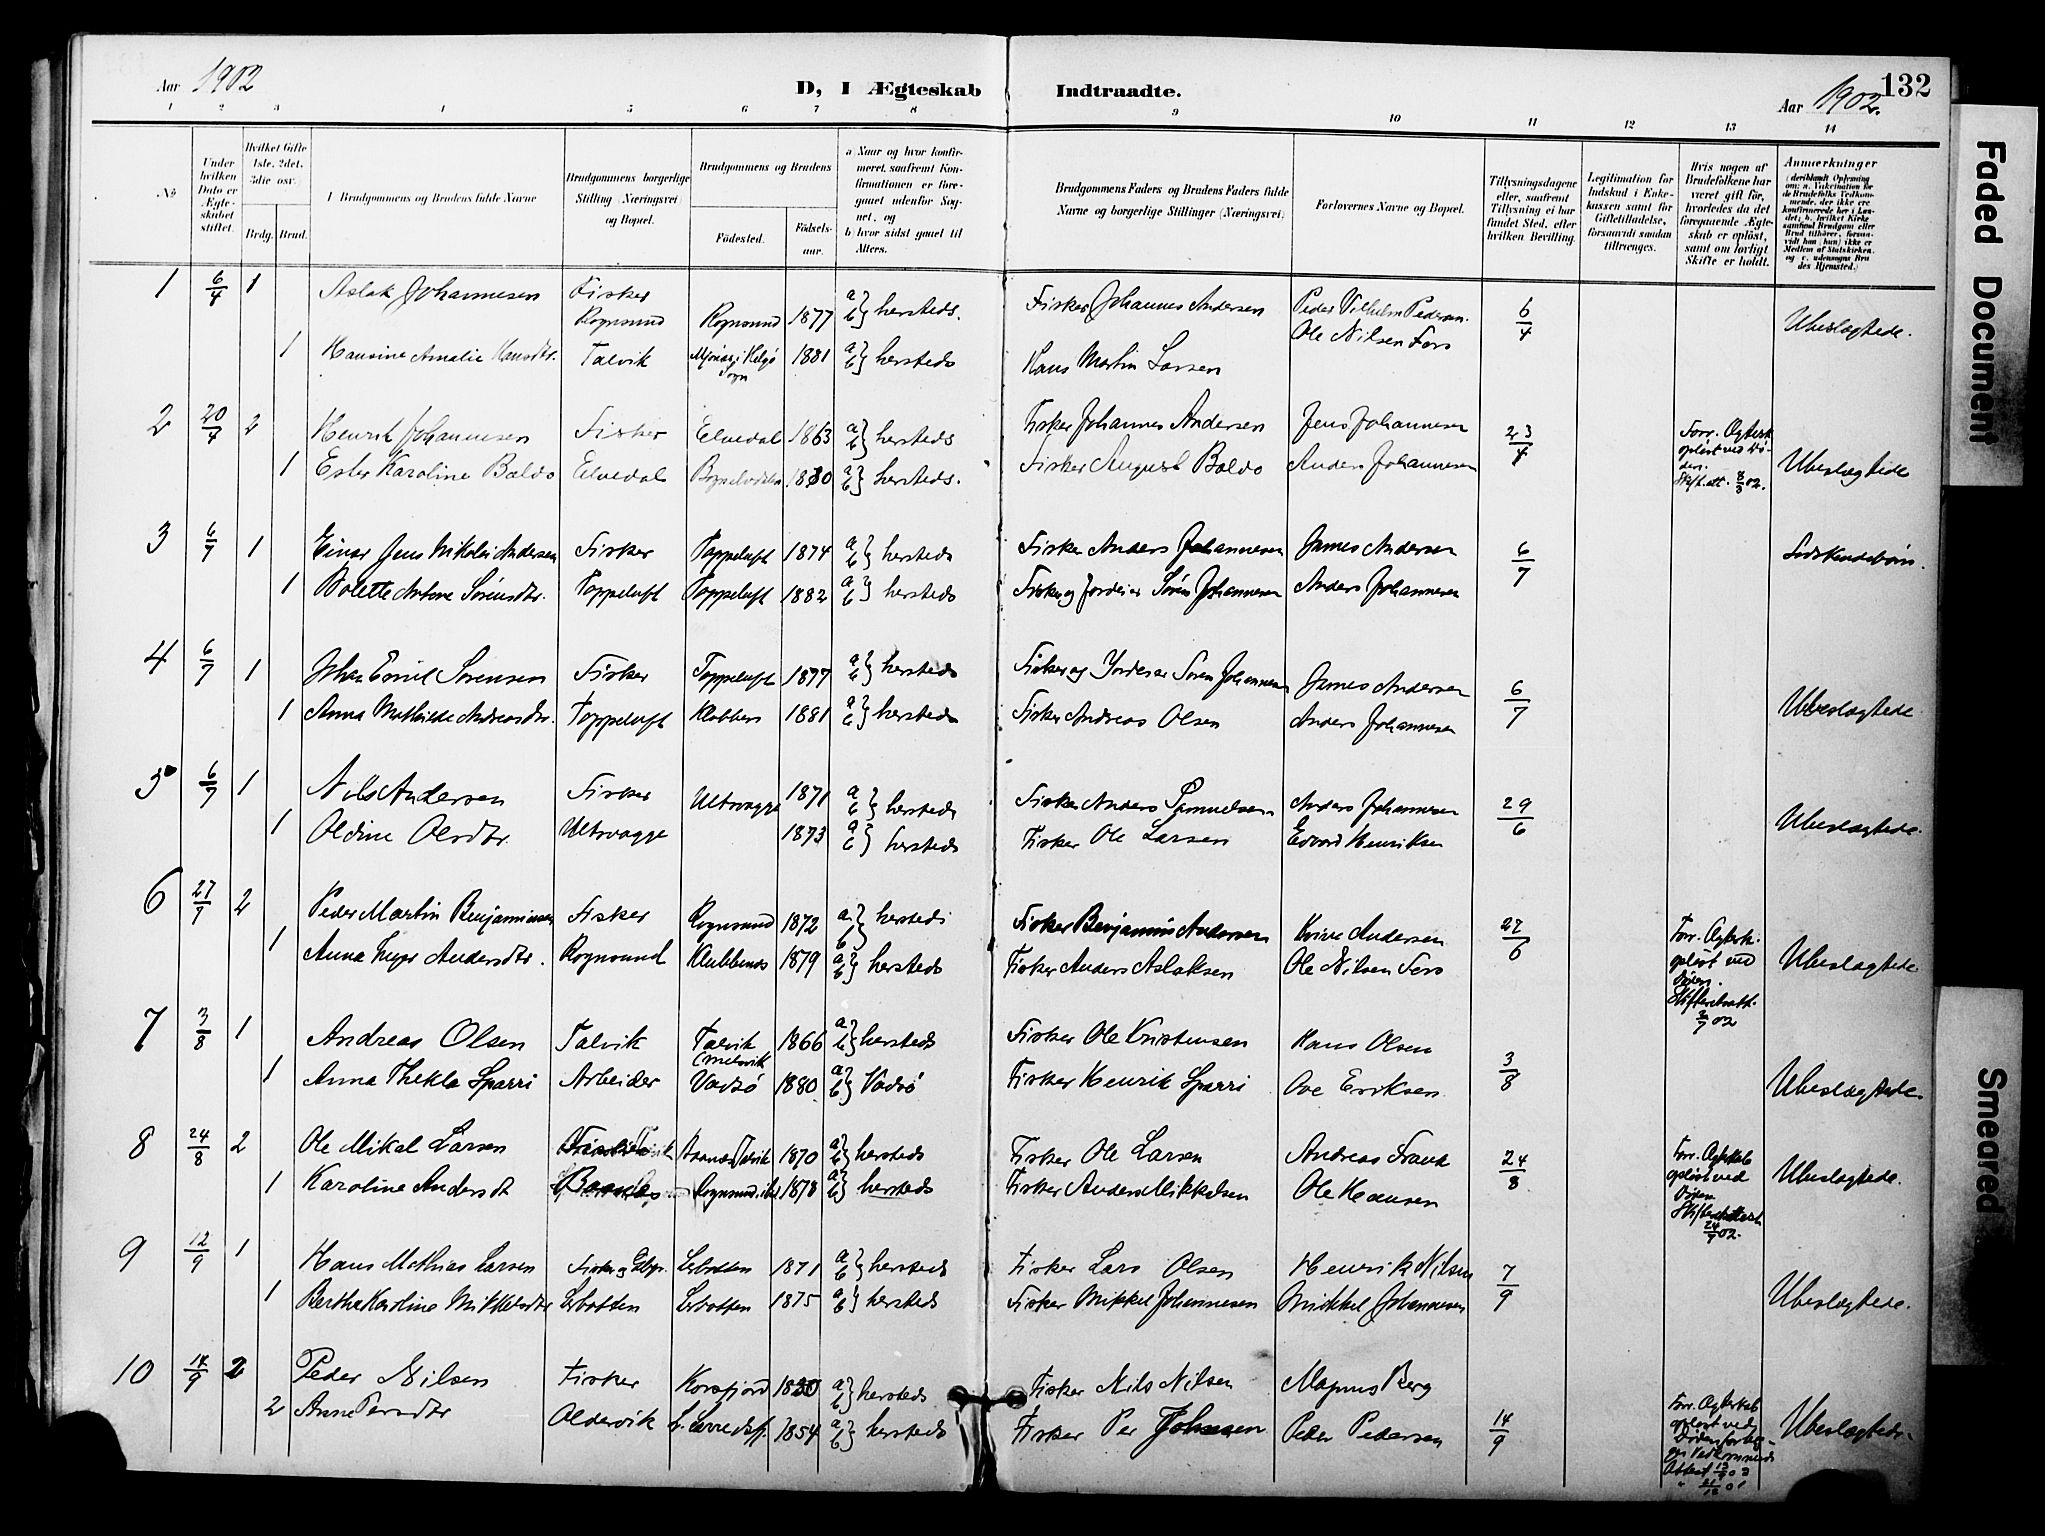 Aar 1902
D, I Ægteskab Indtraadte.
Aar 1902.
132
1 2 3 4 5 6 7 8 9 10 11 12 13 14
No
Under hvilken Dato er Ægteskabet stiftet.
Hvilket Gifte 1ste, 2det, 3die osv.
Brdg. Brud.
Brudgommens og Brudens fulde Navne
Brudgommens borgerlige Stilling (Næringsvei) og Bopæl.
Brudgommens og Brudens
Fødested.
Fødselsaar.
a Naar og hvor konfirmeret, saafremt Konfirmationen er foregaaet udenfor Sognet, og
b hvor sidst gaaet til Alters.
Brudgommens Faders og Brudens Faders fulde Navne og borgerlige Stillinger (Næringsvei)
Forlovernes Navne og Bopæl.
Tillysningsdagene eller, saafremt Tillysning ei har fundet Sted, efter hvilken Bevilling.
Legitimation for Indskud i Enkekassen samt for Giftetilladelse, forsaavidt saadan tiltrænges.
Hvis nogen af Brudefolkene har været gift før, hvorledes da det foregaaende Ægteskab er opløst, samt om lovligt Skifte er holdt.
Anmærkninger
1 6/4 1 Aslak Johannesen Fisker Rognsund Rognsund 1877 a b } hersteds. Fisker Johannes Andersen Peder Vilhelm Pedersen. Ole Nilsen Fors 6/4 Ubeslægtede.
1 Hansine Amalie Hansdtr. Talvik Sogn 1881 a b } hersteds Hans Martin Larsen
2 20/4 2 Henrik Johannesen Fisker Elvedal 1863 a b } hersteds Fisker Johannes Andersen Jens Johannesen 23/4 Forr. Ægtesk. opløst ved Døden. Skift.att. 8/3 02. Ubeslægtede
1 Ester Karoline Baldo Elvedal 1880 a b } hersteds. Fisker August Baldo Anders Johannesen
3 6/7 1 Einar Jens Nikolai Andersen Fisker Toppeluft 1874 a b } hersteds Fisker Anders Johannesen James Andersen 6/7 Sødskendebørn.
1 Bolette Antone Sørensdtr. Toppeluft Toppeluft 1882 a b } hersteds Fisker og Jordeier Søren Johannesen Anders Johannesen
4 6/7 1 Johan Emil Sørensen Fisker Toppeluft 1877 a b } hersteds Fisker og Jordeier Søren Johannesen James Andersen 6/7 Ubeslægtede
1 Anna Mathilde Andreasdtr. Toppeluft 1881 a b } hersteds Fisker Andreas Olsen Anders Johannesen
5 6/7 1 Nils Andersen Fisker Ultvagge 1871 a b } hersteds Fisker Anders Samuelsen Anders Johannesen 29/6 Ubeslægtede.
1 Oldine Olsdtr. Ultvagge 1873 a b } hersteds Fisker Ole Larsen Edvard Henriksen
6 27/7 2 Peder Martin Benjaminsen Fisker Rognsund 1872 a b } hersteds Fisker Benjamin Andersen Andersen 27/6 Forr. Ægtesk. opløst ved Døden. Skifteratt. 2/7 02 Ubeslægtede
1 Anna Andersdtr. Rognsund Klubbenes 1879 a b } hersteds Fisker Anders Aslaksen Ole Nilsen Fors
7 3/8 1 Andreas Olsen Talvik Talvik 1866 a b } hersteds Fisker Ole Kristensen Hans Olsen 3/8 Ubeslægtede.
1 Anna Thekla Sparri Arbeider Vadsö 1880 a b } Vadsö Fisker Henrik Sparri Ove Eriksen
8 24/8 2 Ole Mikal Larsen Talvik 1870 a b } hersteds Fisker Ole Larsen Andreas Frank 24/8 Forr. Ægteskab opløst ved Døden Skifteattest 24/7 02. Ubeslægtede.
1 Karoline Andersdt Rognsund 1878 a b } hersteds Fisker Anders Mikkelsen Ole Hansen
9 12/9 1 Hans Mathias Larsen Fisker og Lerbotten 1871 a b } hersteds Fisker Lars Olsen Henrik Nilsen 7/9 Ubeslægtede.
1 Berthe Karoline Mikkelsdtr Lerbotten Lerbotten 1875 a b } hersteds Fisker Mikkel Johannesen Mikkel Johannesen
10 14/9 2 Peder Nilsen Fisker Korsfjord a b } hersteds Fisker Nils Nilsen Magnus Berg 14/9 Forr. Ægteskab opløst ved Døden for begges Vedkommende Ubeslægtede.
2 Anne Persdtr Aldervik 1854 a b } hersteds Fisker Per Johnsen Peder Pedersen
Faded Document
Smeared